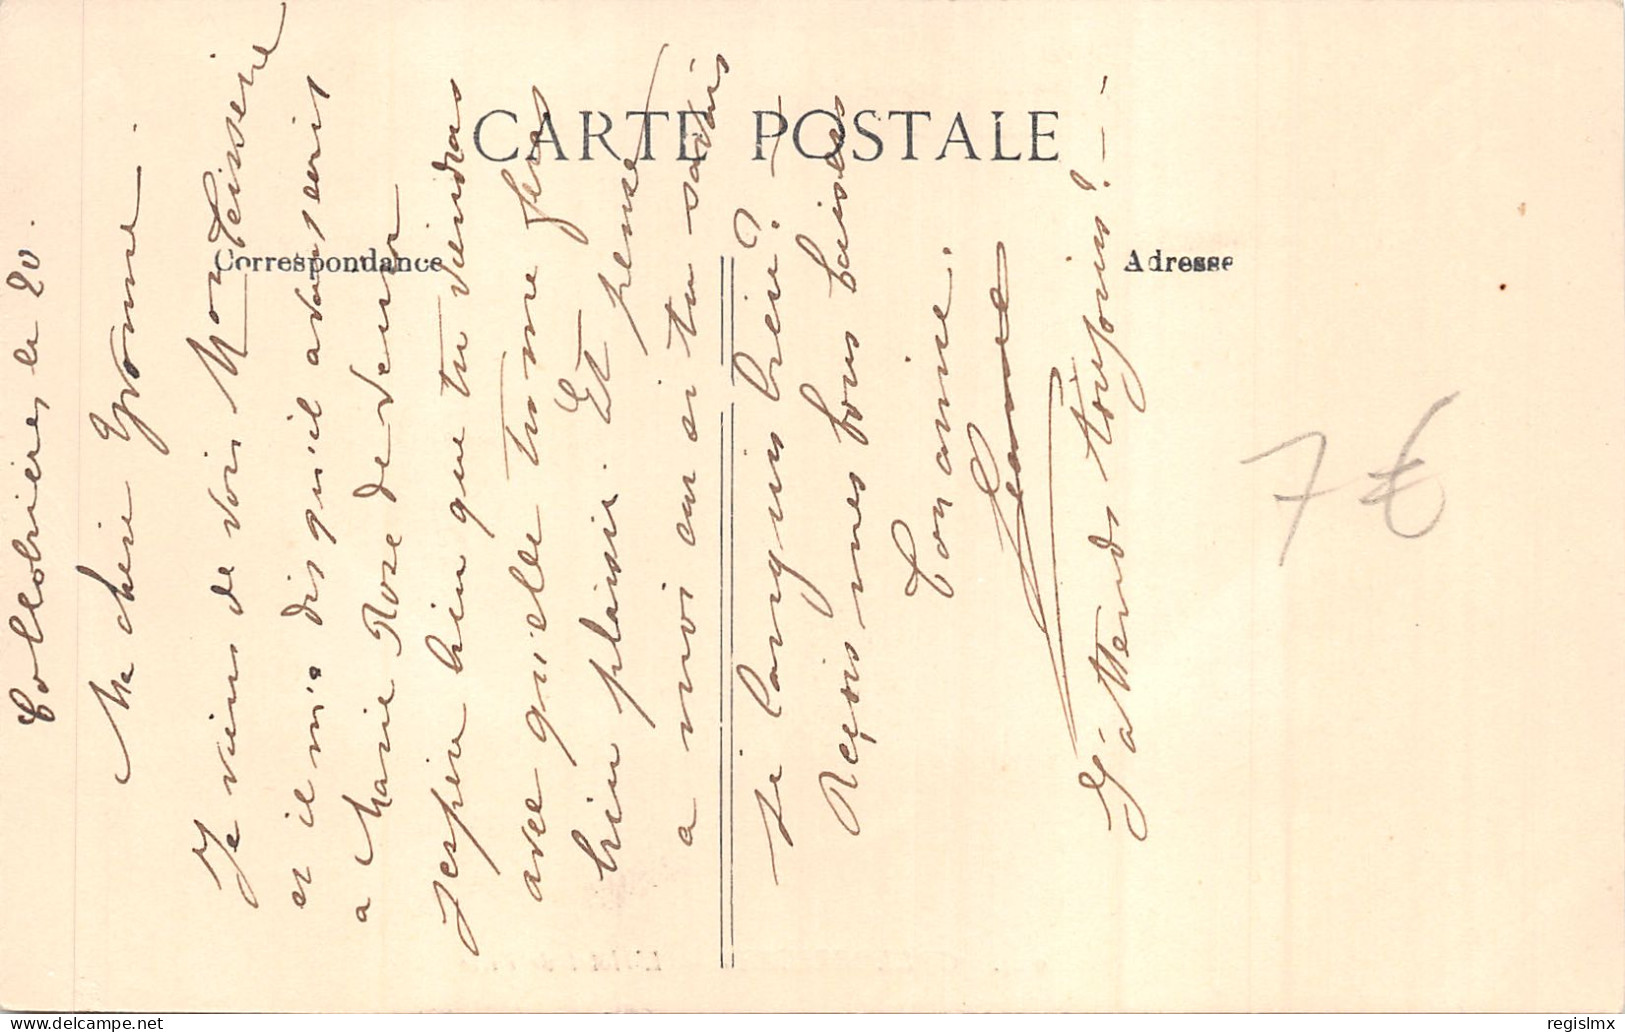 CARTE POSTALE
Correspondance
Adresse
Collobrières le 20.
Ma chère Yvonne.
Je viens de voir Mon Teisseire
et il m'a dis qu'il avais ecrit
a Marie Rose de venir
J'espère bien que tu viendras
avec qu'elle tu me feras
bien plaisir. Et pense
a moi car si tu savais
Je languis bien? —
Reçois mes bons baisers
Ton amie.
Jeanne
J'attends toujours! —
7 €
regislmx